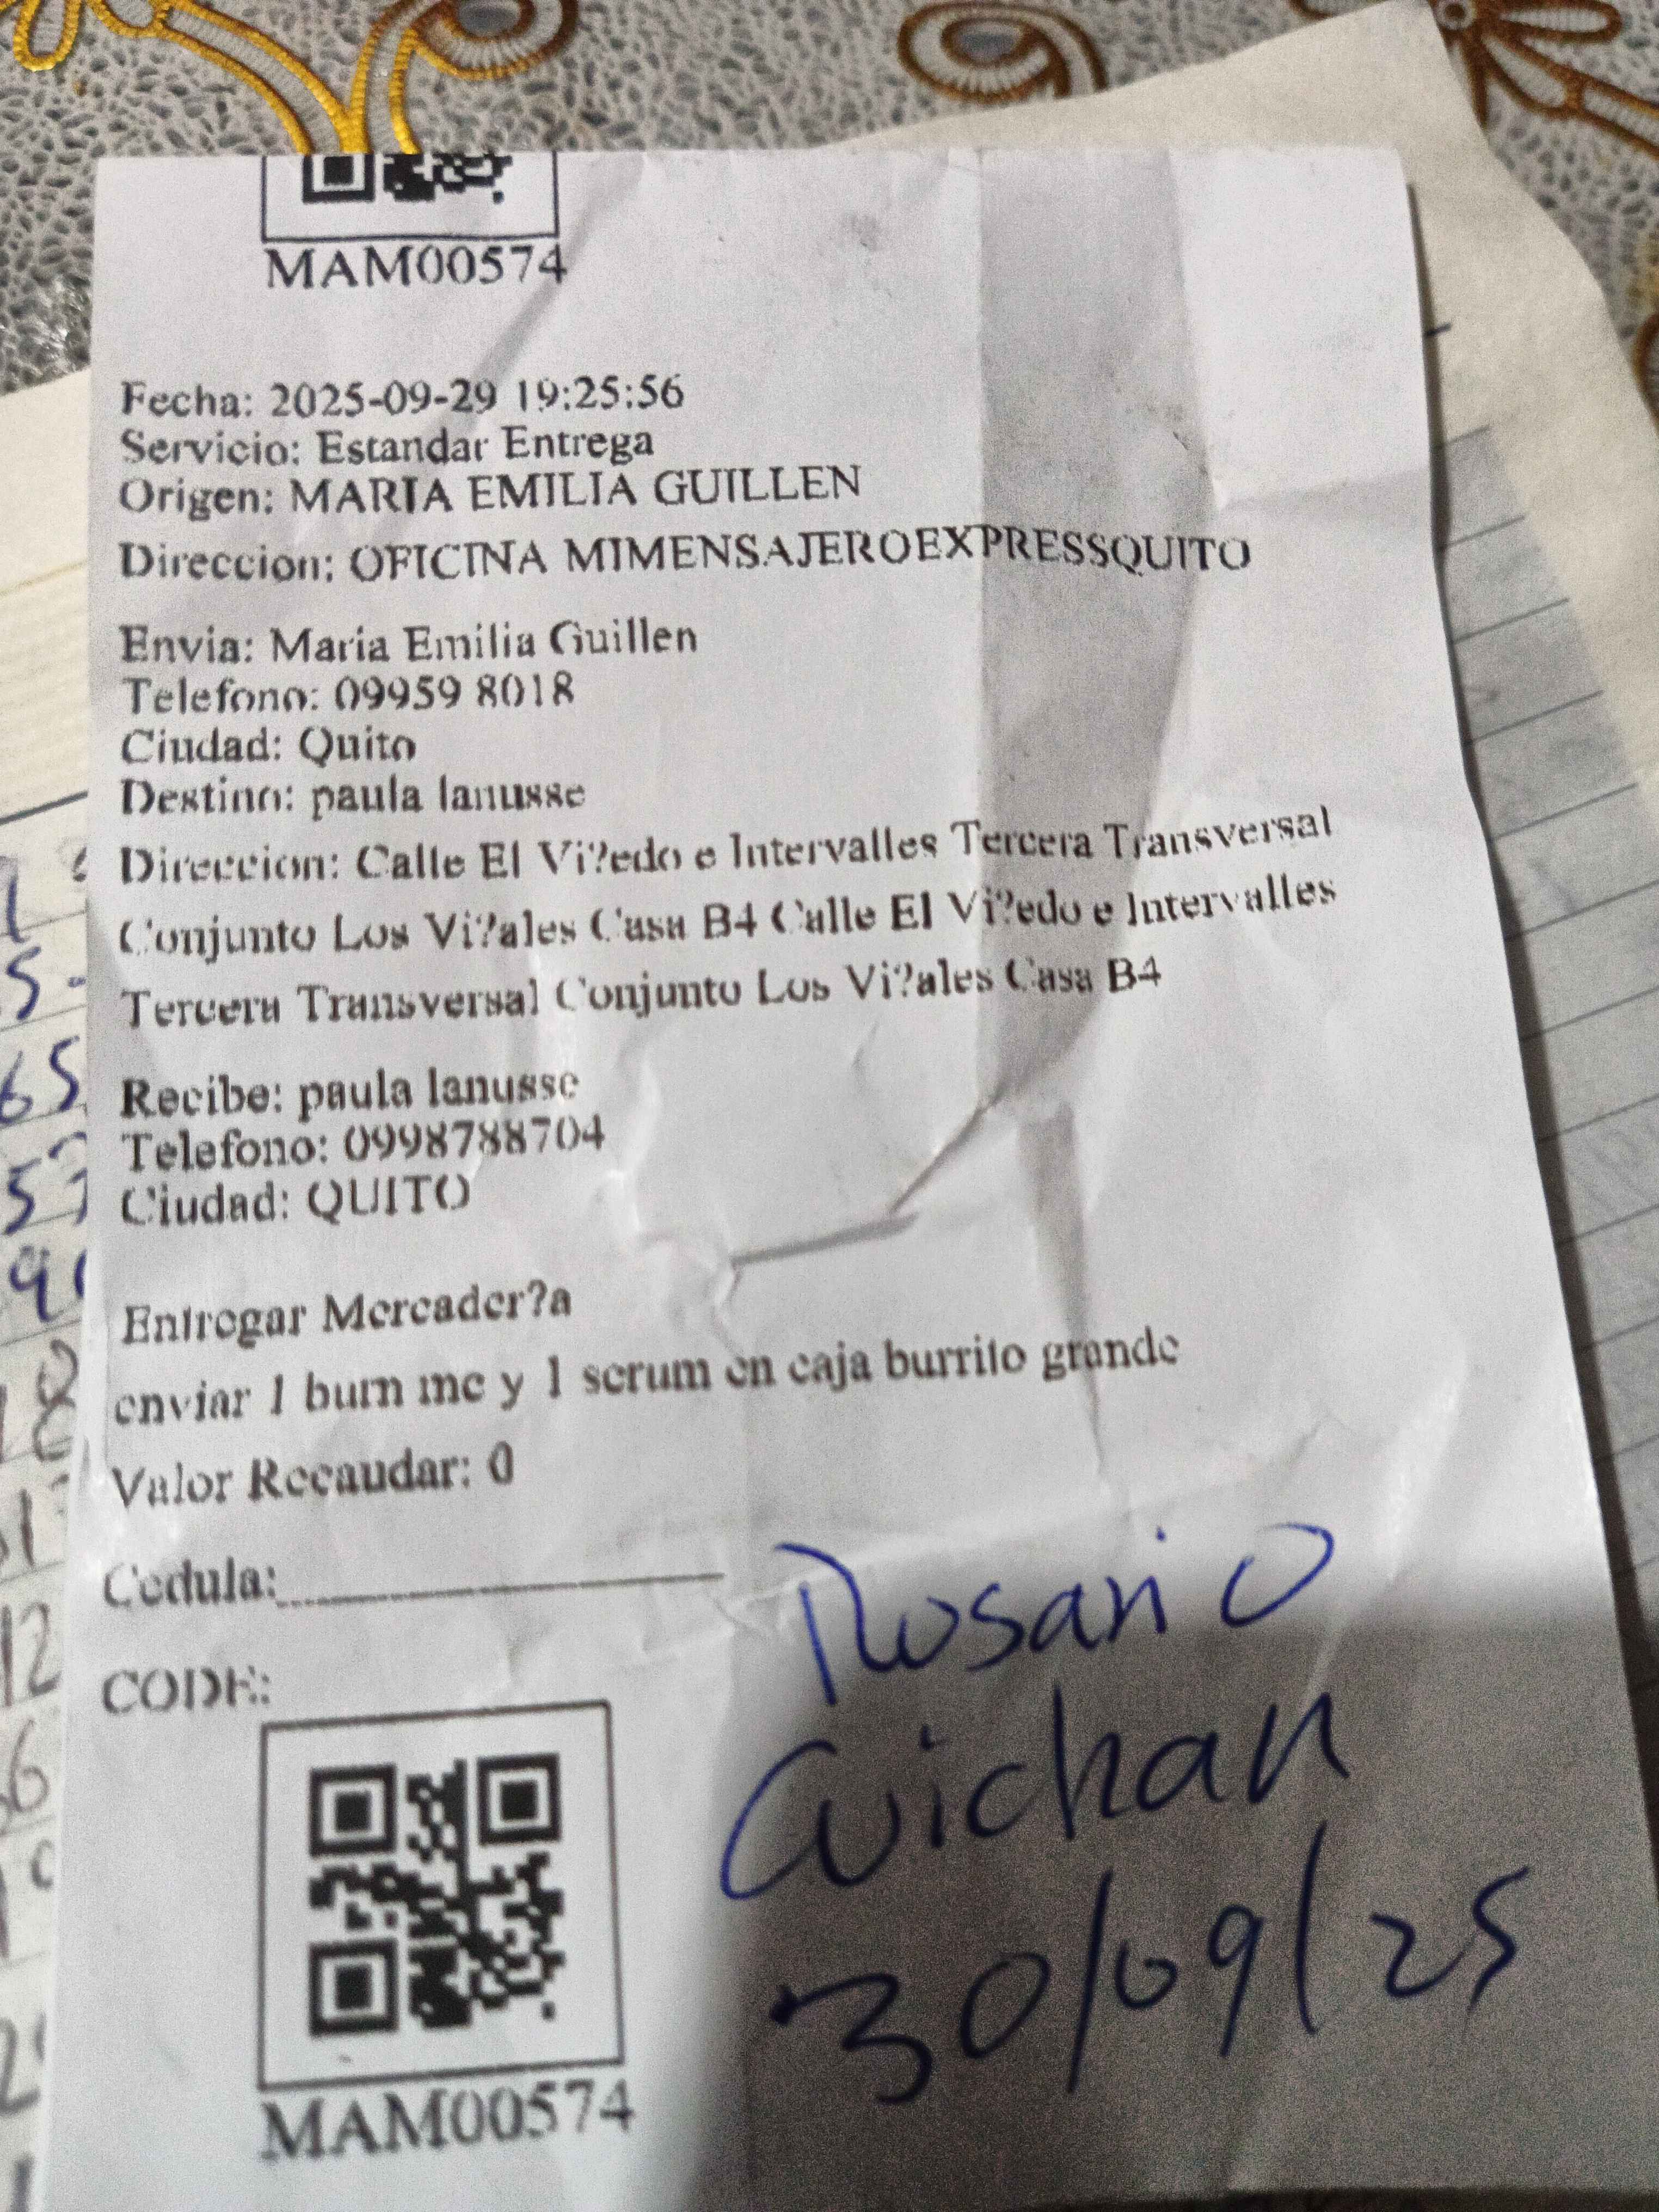 MAM00574
Fecha: 2025-09-29 19:25:56
Servicio: Estandar Entrega
Origen: MARIA EMILIA GUILLEN
Direccion: OFICINA MIMENSAJEROEXPRESSQUITO
Envia: Maria Emilia Guillen
Telefono: 09959 8018
Ciudad: Quito
Destino: paula lanusse
Direccion: Calle El Vi?edo e Intervalles Tercera Transversal
Conjunto Los Vi?ales Casa B4 Calle El Vi?edo e Intervalles
Tercera Transversal Conjunto Los Vi?ales Casa B4
Recibe: paula lanusse
Telefono: 0998788704
Ciudad: QUITO
Entregar Mercader?a
enviar 1 burn me y 1 serum en caja burrito grande
Valor Recaudar: 0
Cedula:
Rosario
Cuichan
30/09/25
CODE:
MAM00574